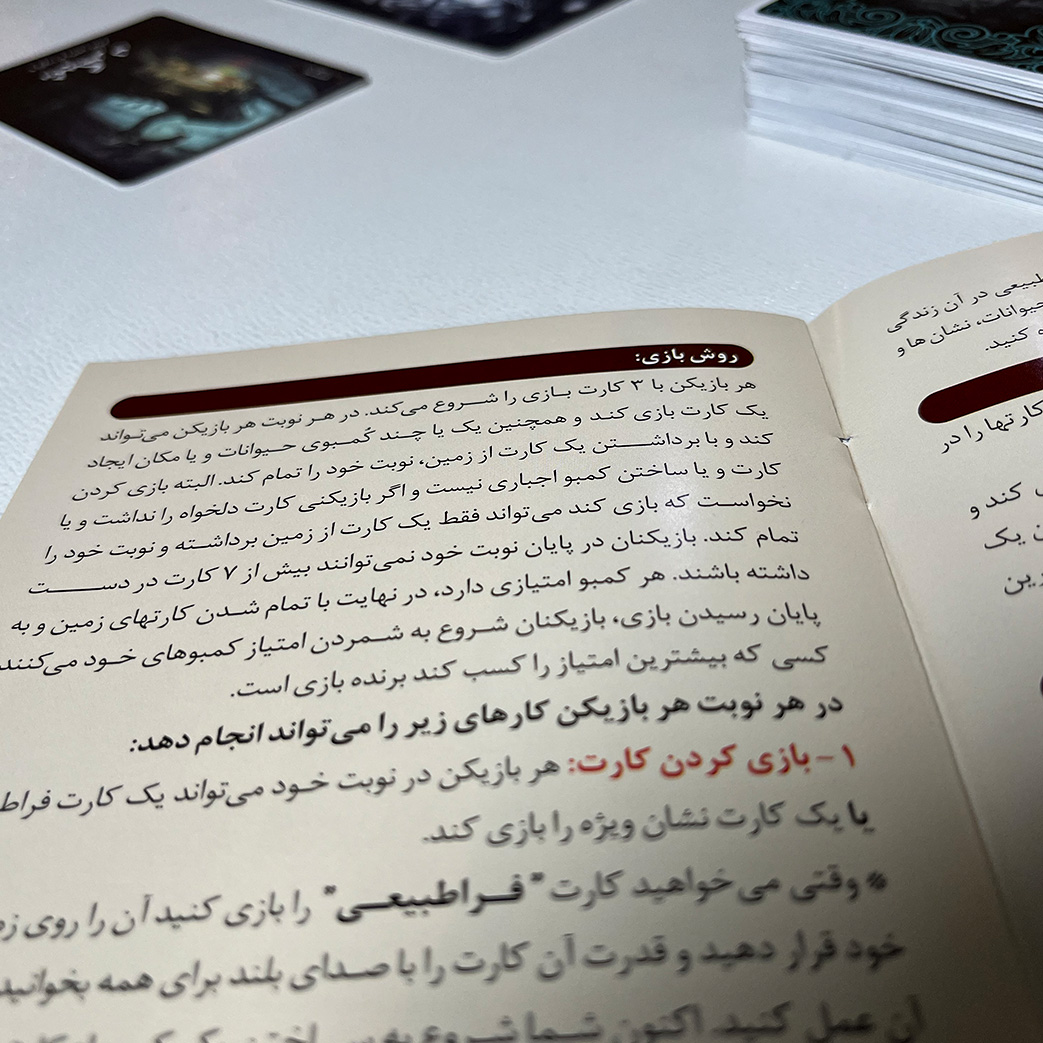 روش بازی:
هر بازیکن با ۳ کارت بازی را شروع می‌کند. در هر نوبت هر بازیکن می‌تواند
یک کارت بازی کند و همچنین یک یا چند کُمبوی حیوانات و یا مکان ایجاد
کند و با برداشتن یک کارت از زمین، نوبت خود را تمام کند. البته بازی کردن
کارت و یا ساختن کمبو اجباری نیست و اگر بازیکنی کارت دلخواه را نداشت و یا
نخواست که بازی کند می‌تواند فقط یک کارت از زمین برداشته و نوبت خود را
تمام کند. بازیکنان در پایان نوبت خود نمی‌توانند بیش از ۷ کارت در دست
داشته باشند. هر کمبو امتیازی دارد، در نهایت با تمام شدن کارتهای زمین و به
پایان رسیدن بازی، بازیکنان شروع به شمردن امتیاز کمبوهای خود می‌کنند
کسی که بیشترین امتیاز را کسب کند برنده بازی است.
در هر نوبت هر بازیکن کارهای زیر را می‌تواند انجام دهد:
۱- بازی کردن کارت: هر بازیکن در نوبت خود می‌تواند یک کارت فراط
یا یک کارت نشان ویژه را بازی کند.
* وقتی می خواهید کارت "فراطبیعی" را بازی کنید آن را روی
خود قرار دهید و قدرت آن کارت را با صدای بلند برای همه بخوانید
آن عمل کنید. اکنون شما شروع به
در آن زندگی
حیوانات، نشان ها و
کنید.
کارتها را در
کند و
یک